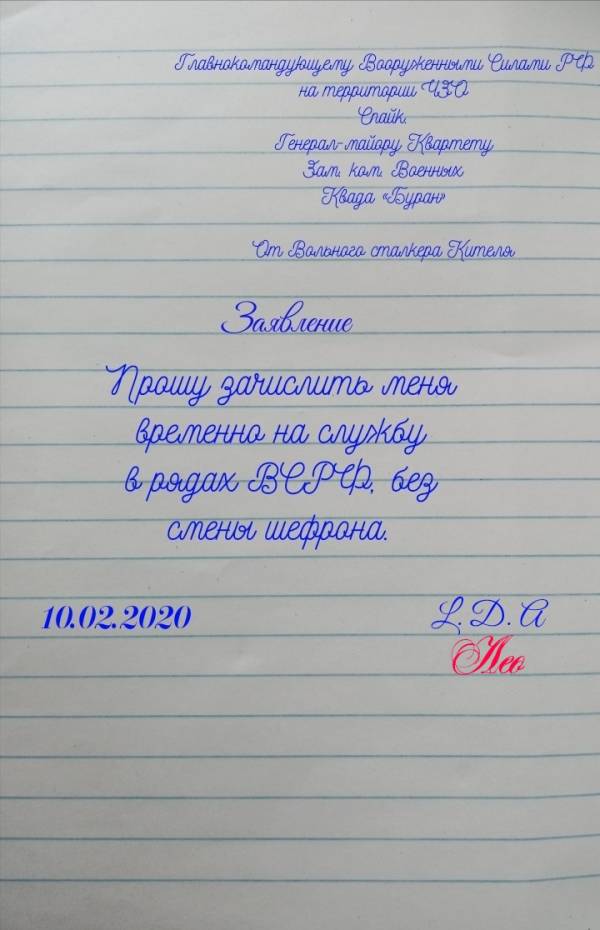 Главнокомандующему Вооруженными Силами РФ
на территории ЧЗО
Спайк.
Генерал-майору Квартету
Зам. ком. Военных
Квада «Буран»
От Вольного сталкера Кителя
Заявление
Прошу зачислить меня
временно на службу
в рядах ВСРФ, без
смены шефрона.
10.02.2020
L. D. A
Лео